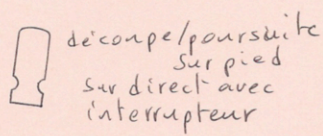 découpe/poursuite
sur pied
sur direct avec
interrupteur